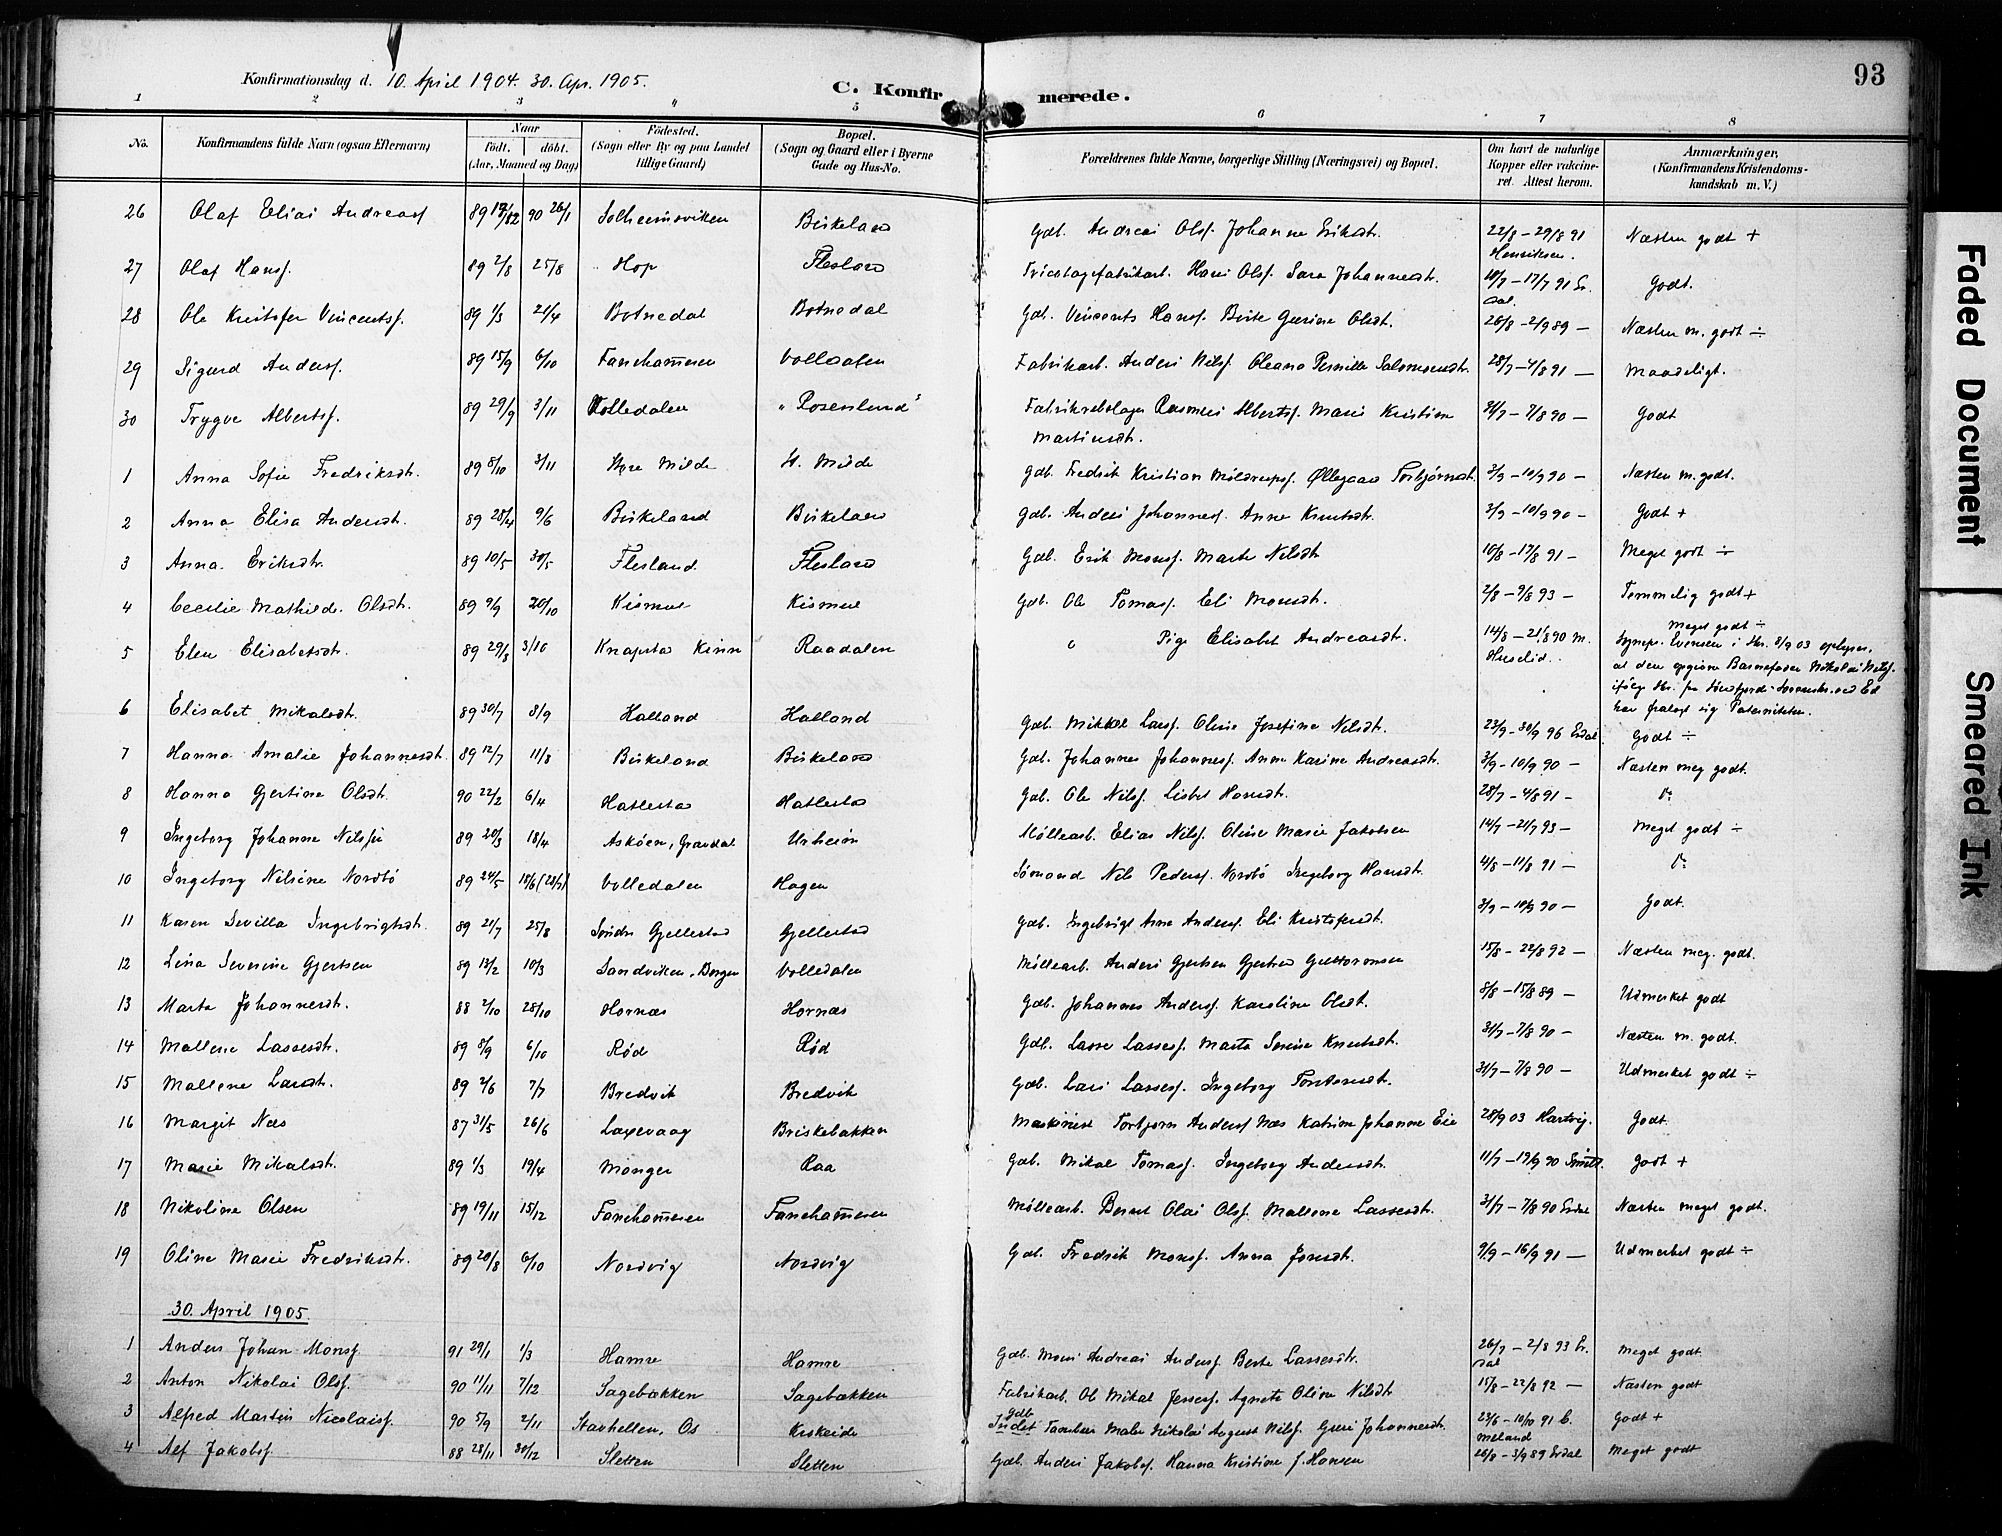 Konfirmationsdag d. 10. April 1904. 30. Apr. 1905.
C. Konfirmerede.
93
1 2 3 4 5 6 7 8
No. Konfirmandens fulde Navn (ogsaa Efternavn) Naar født. døbt. (Aar, Maaned og Dag) Fødested. (Sogn eller By og paa Landet tillige Gaard) Bopæl. (Sogn og Gaard eller i Byerne Gade og Hus-No. Forældrenes fulde Navne, borgerlige Stilling (Næringsvei) og Bopæl. Om havt de naturlige Kopper eller vakcineret. Attest herom. Anmærkninger. (Konfirmandens Kristendomskundskab m. V.)
26 Olaf Elias Andreasf 89 90 26/1 Solheimsviken Birkeland Gdb. Andreas Olsf. Johanne Eriksdtr. 22/8 - 29/8 91 Henriksen. Næsten godt +
27 Olaf Hansf. 89 2/8 25/8 Hop Flesland Tricotagefabrikarb. Hans Olsf. Sara Johannesdtr. 10/7 - 17/7 91 Erdal. Godt.
28 Ole Kristofer Vincentsf. 89 1/3 21/4 Botnedal Botnedal Gdb. Vincents Hansf. Birte Gurine Olsdt. 26/8 - 2/9 89 - Næsten m. godt ÷
29 Sigurd Andersf. 89 15/9 6/10 Fanehammeren Volledalen Fabrikarb. Anders Nilsf. Oleana Pernille Salomonsdtr. 28/7 - 4/8 91 - Maadeligt.
30 Trygve Albertsf. 89 29/9 3/11 Volledalen "Rosenlund" Fabrikarbeider Rasmus Albertsf. Marie Kristine Martinsdt. 31/7 - 7/8 90 - Godt
1 Anna Sofie Fredriksdt. 89 8/10 3/11 Store Milde St. Milde Gdb. Fredrik Kristian Møldrupsf. Øllegaard Torbjørnsdt. 3/9 - 10/9 90 - Næsten m. godt.
2 Anna Elisa Andersdt. 89 28/4 9/6 Birkeland Birkeland Gdb. Anders Johannesf. Anne Knutsdt. 3/9 - 10/9 90 - Godt +
3 Anna Eriksdtr. 89 10/5 30/5 Flesland. Flesland Gdb. Erik Monsf. Marte Nilsdt 10/8 - 17/8 91 - Meget godt ÷
4 Cecilie Mathilde Olsdt. 89 9/9 20/10 Kismul Kismul Gdb. Ole Tomasf. Eli Monsdt. 2/8 - 9/8 93 - Temmelig godt +
5 Elen Elisabetsdt. 89 29/3 3/10 Knapstad Kinn Raadalen Pige Elisabet Andreasdt. 14/8 - 21/8 90 M. Huselid. Meget godt ÷
Sognepr. Evensen i Skr. 8/9 03 oplyser,
at den opgivne Barnefader Nikolai Nilsf.
ifølge Skr. fra Søndfjords Sorenskr. ved Ed
har fralagt sig Paterniteten.
6 Elisabet Mikalsdt. 89 30/7 8/9 Halland Halland Gdb. Mikkel Larsf. Oline Josefine Nilsdt. 23/9 - 30/9 96 Erdal. Godt ÷
7 Hanna Amalie Johannesdt. 89 12/7 11/8 Birkeland Birkeland Gdb. Johannes Johannesf. Anna Karine Andreasdt. 3/9 - 10/9 90 - Næsten meg godt.
8 Hanna Gjertine Olsdt. 90 22/2 6/4 Hatlestad Hatlestad Gdb. Ole Nilsf. Lisbet Hansdt. 28/7 - 4/8 91 - do
9 Ingeborg Johanne Nilssen 89 20/3 18/4 Askøen, Gravdal Urheim Møllearb. Elias Nilsf. Oline Marie Jakobsen 14/7 - 21/7 93 - Meget godt ÷
10 Ingeborg Nilsine Nordbø 89 24/5 Volledalen Hagen Sømand Nils Pedersf. Nordbø Ingeborg Hansdt. 4/8 - 11/8 91 - do
11 Karen Sevilla Ingebrigtsdt. 89 21/7 25/8 Søndre Gjellestad Gjellestad Gdb. Ingebrigt Arne Andersf. Eli Kristofersdt. 3/9 - 10/9 90 - Godt.
12 Lina Severine Gjertsen 89 13/2 10/3 Sandviken, Bergen Volledalen Møllearb. Anders Gjertsen Gjertrud Guttormsen 15/8 - 22/8 92 - Næsten meg. godt.
13 Marta Johannesdt. 88 2/10 28/10 Hornæs Hornæs Gdb. Johannes Andersf. Karoline Olsdt. 8/8 - 15/8 89 - Udmerket godt
14 Mallene Lassesdt. 89 8/9 6/10 Rød Rød Gdb. Lasse Lassesf. Marta Serine Knutsdt. 31/7 - 7/8 90 - Næsten m. godt.
15 Mallene Larsdt. 89 2/6 7/7 Bredvik Bredvik Gdb. Lars Lassesf. Ingeborg Torstensdt. 31/7 - 7/8 90 - Udmerket godt ÷
16 Margit Næs 87 31/5 26/6 Laxevaag Briskebakken Maskinist Torbjørn Andersf Næs Katrine Johanne Eie 28/9 03 Hartvig. Godt
17 Marie Mikalsdt. 89 1/3 19/4 Monger Raa Gdb. Mikal Tomasf. Ingeborg Andersdt. Godt +
18 Nikoline Olsen 89 19/11 15/12 Fanehammeren Fanehammeren Møllearb. Bernt Olai Olsf. Mallene Lassesdt. 31/7 - 7/8 90 Erdal Næsten meget godt.
19 Oline Marie Fredriksdt. 89 20/8 6/10 Nordvig Nordvig Gdb. Fredrik Monsf. Anna Jonsdt. 9/9 - 16/9 91 - Udmerket godt ÷
30. April 1905
1 Anders Johan Monsf 91 29/1 1/3 Hamre Hamre Gdb. Mons Andreas Andersf. Berte Lassesdt. 26/7 - 2/8 93 Erdal Meget godt
2 Anton Nikolai Olsf. 90 11/11 7/12 Sagebakken Sagebakken Fabrikarb. Ole Mikal Jensesf. Agnete Oline Nilsdt 15/8 - 22/8 92 - Næsten godt
3 Alfred Martin Nicolaisf. 90 5/9 2/11 Stavhellen, Os Krokeide Gdb. Maler Nikolai August Nilsf. Guri Johannesdt. Meland Godt +
4 Alf Jakobsf. 88 28/11 30/12 Sletten Sletten Gdb. Anders Jakobsf. Hanna Kristine J. Hansen 26/8 - 3/9 89 Erdal Meget godt
Faded Document
Smeared Ink